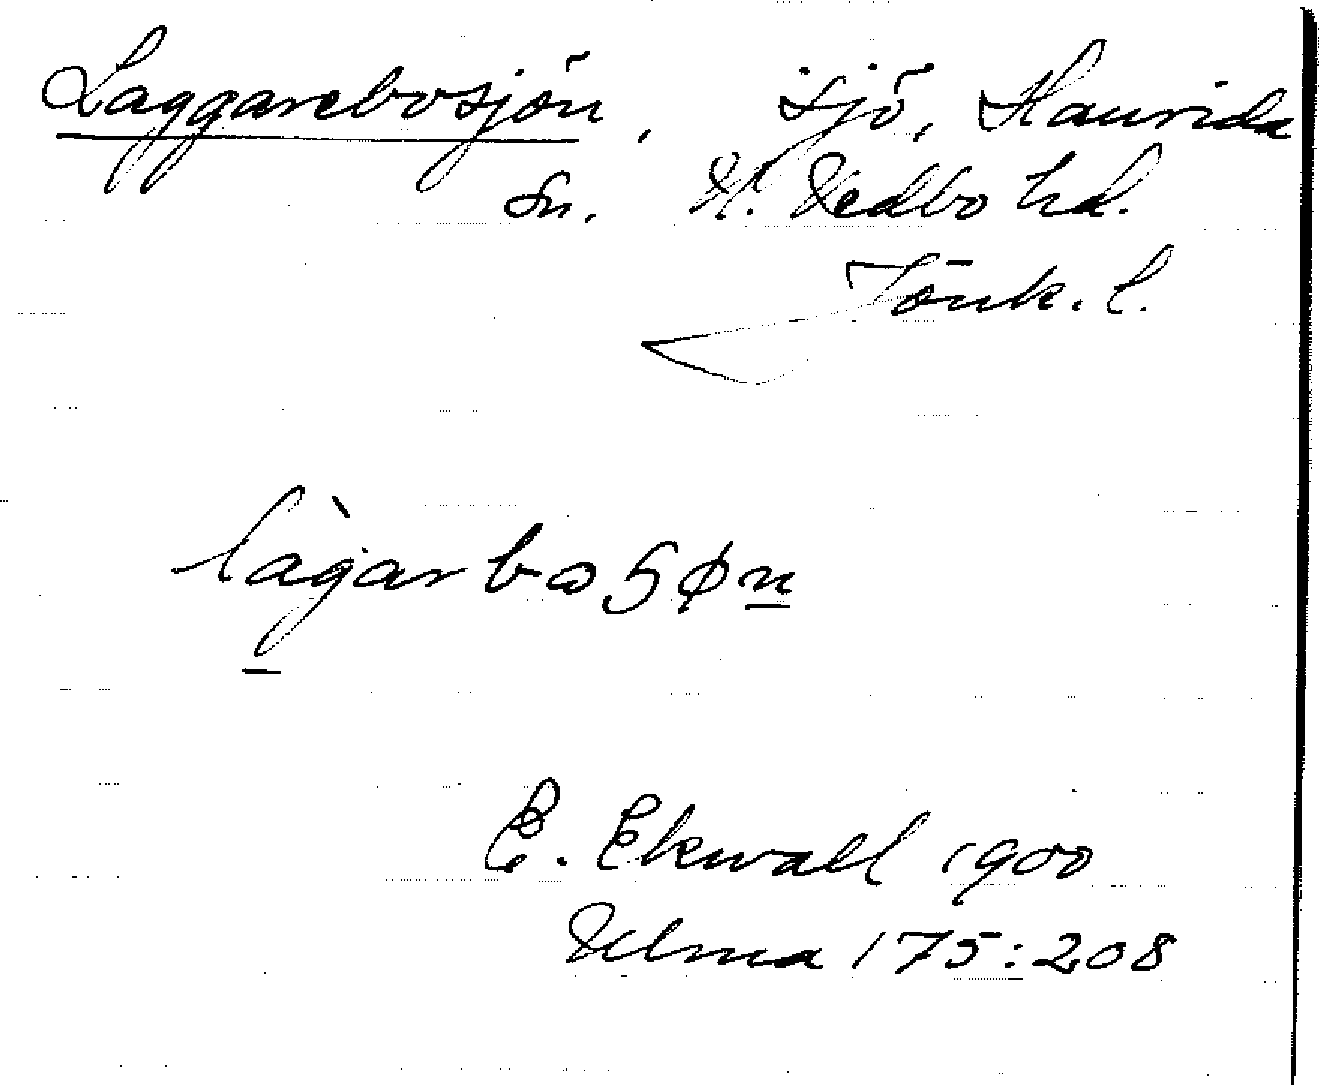 Laggarebosjön, sjö, Haurida
sn. N. Vedbo hd.
Jönk. l.
làgarboſøn
E. Ekwall 1900
Ulma 175:208